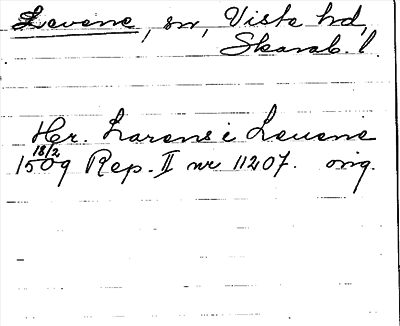 Levene, sn, Vista hd,
Skarab. l.
Hr. Larens i Levene
18/2
1509 Rep. II nr 11207. orig.